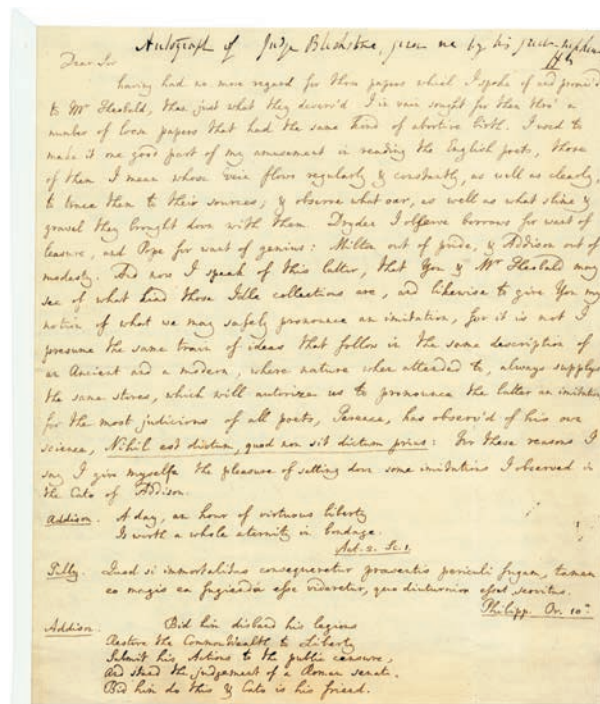 Autograph of Judge Blackstone, given me by his great-nephew
Dear Sir
having had no more regard for those papers which I spoke of and promis'd
to Mr Theobald, than just what they deserv'd I in vain sought for them thro' a
number of loose papers that had the same kind of abortive birth. I used to
make it one good part of my amusement in reading the English poets, those
of them I mean whose vein flows regularly & constantly, as well as clearly,
to trace them to their sources; & observe what oar, as well as what slime &
gravel they brought down with them. Dryden I observe borrows for want of
leasure, and Pope for want of genius: Milton out of pride, & Addison out of
modesty. And now I speak of this latter, that You & Mr Theobald may
see of what kind those Idle collections are, and likewise to give You my
notion of what we may safely pronounce an imitation, for it is not I
presume the same train of ideas that follow in the same description of
an Ancient and a modern, where nature when attended to, always supplys
the same stores, which will autorize us to pronounce the latter an imitation
for the most judicious of all poets, Terence, has observ'd of his own
science, Nihil est dictum, quod non sit dictum prius: For these reasons I
say I give myselfe the pleasure of setting down some imitations I observed in
the Cato of Addison.
Addison. A day, an hour of virtuous liberty
Is worth a whole eternity in bondage.
Act. 2. Sc. 1.
Tully. Quod si immortalitas consequeretur præsentis periculi fugam, tamen
eo magis ea fugienda esse videretur, quo diuturnior esset servitus.
Philipp. Or. 10ª
Addison. Bid him disband his legions
Restore the Commonwealth to Liberty
Submit his Actions to the public censure,
And stand the judgement of a Roman senate,
Bid him do this & Cato is his friend.